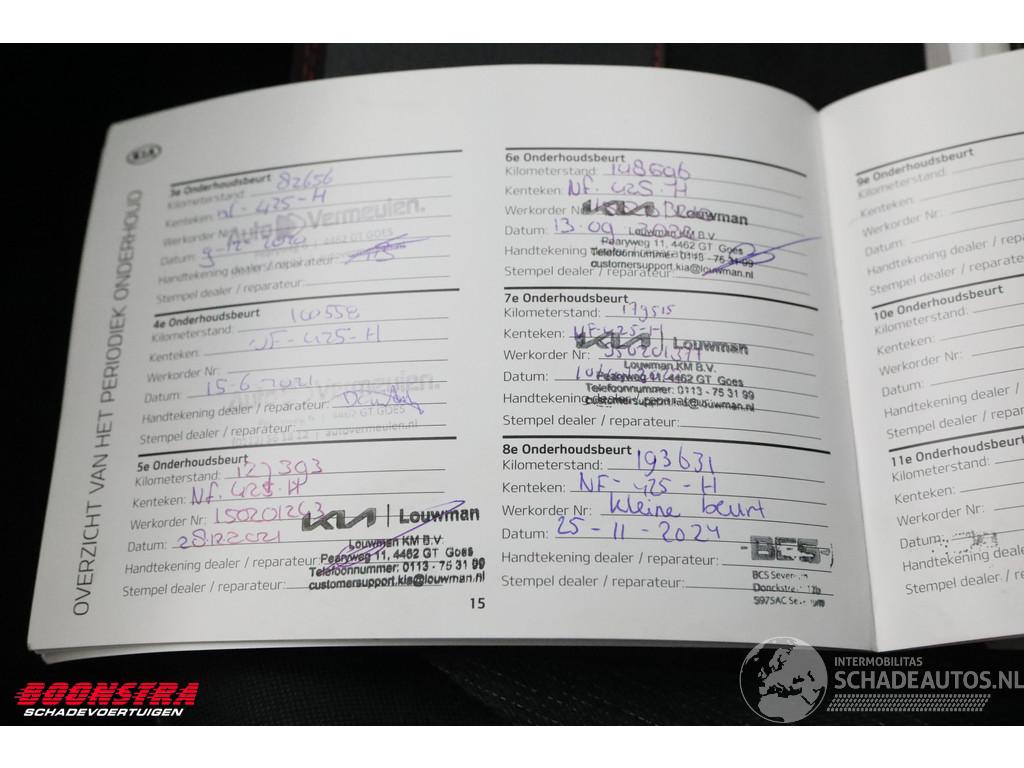 OVERZICHT VAN HET PERIODIEK ONDERHOUD
KIA
3e Onderhoudsbeurt
Kilometerstand: 82656
Kenteken: NF-425-H
Werkorder Nr:
Auto Vermeulen.
Datum:
4462 GT GOES
Handtekening dealer / reparateur:
Stempel dealer / reparateur:
4e Onderhoudsbeurt
Kilometerstand: 100558
Kenteken: NF-425-H
Werkorder Nr:
Datum: 15-6-2021
Vermeulen.
Handtekening dealer / reparateur:
4462 GT GOES
Stempel dealer / reparateur:
autovermeulen.nl
5e Onderhoudsbeurt
Kilometerstand: 127393
Kenteken: NF-425-H
Werkorder Nr: 150201263
KIA | Louwman
Datum: 28.12.2021
Louwman KM B.V.
Paaryweg 11, 4462 GT Goes
Handtekening dealer / reparateur:
Telefoonnummer: 0113 - 75 31 99
Stempel dealer / reparateur:
customersupport.kia@louwman.nl
15
6e Onderhoudsbeurt
Kilometerstand: 148696
Kenteken: NF-425-H
Werkorder Nr
KIA Louwman
Datum: 13.09
Louwman KM B.V.
Paaryweg 11, 4462 GT Goes
Handtekening
Telefoonnummer: 0113 - 75 31 99
customersupport.kia@louwman.nl
Stempel dealer / reparateur:
7e Onderhoudsbeurt
Kilometerstand: 179515
Kenteken: NF-425-H
KIA | Louwman
Werkorder Nr:
Louwman KM B.V.
Datum:
Paaryweg 11, 4462 GT Goes
Telefoonnummer: 0113 - 75 31 99
Handtekening dealer / reparateur:
customersupport.kia@louwman.nl
Stempel dealer / reparateur:
8e Onderhoudsbeurt
Kilometerstand: 193631
Kenteken: NF-425-H
Werkorder Nr: kleine beurt
Datum: 25-11-2024
Handtekening dealer / reparateur:
BCS
Stempel dealer / reparateur:
5975AC
9e Onderhoudsbeurt
Kilometerstand:
Kenteken:
Werkorder Nr:
Datum:
Handtekening dealer /
Stempel dealer / rep
10e Onderhoudsbeurt
Kilometerstand:
Kenteken:
Werkorder Nr:
Datum:
Handtekening dealer / r
Stempel dealer / repara
11e Onderhoudsbeurt
Kilometerstand:
Kenteken:
Werkorder Nr:
Datum:
Handtekening dealer / re
Stempel dealer / reparat
BOONSTRA
SCHADEVOERTUIGEN
INTERMOBILITAS
SCHADEAUTOS.NL